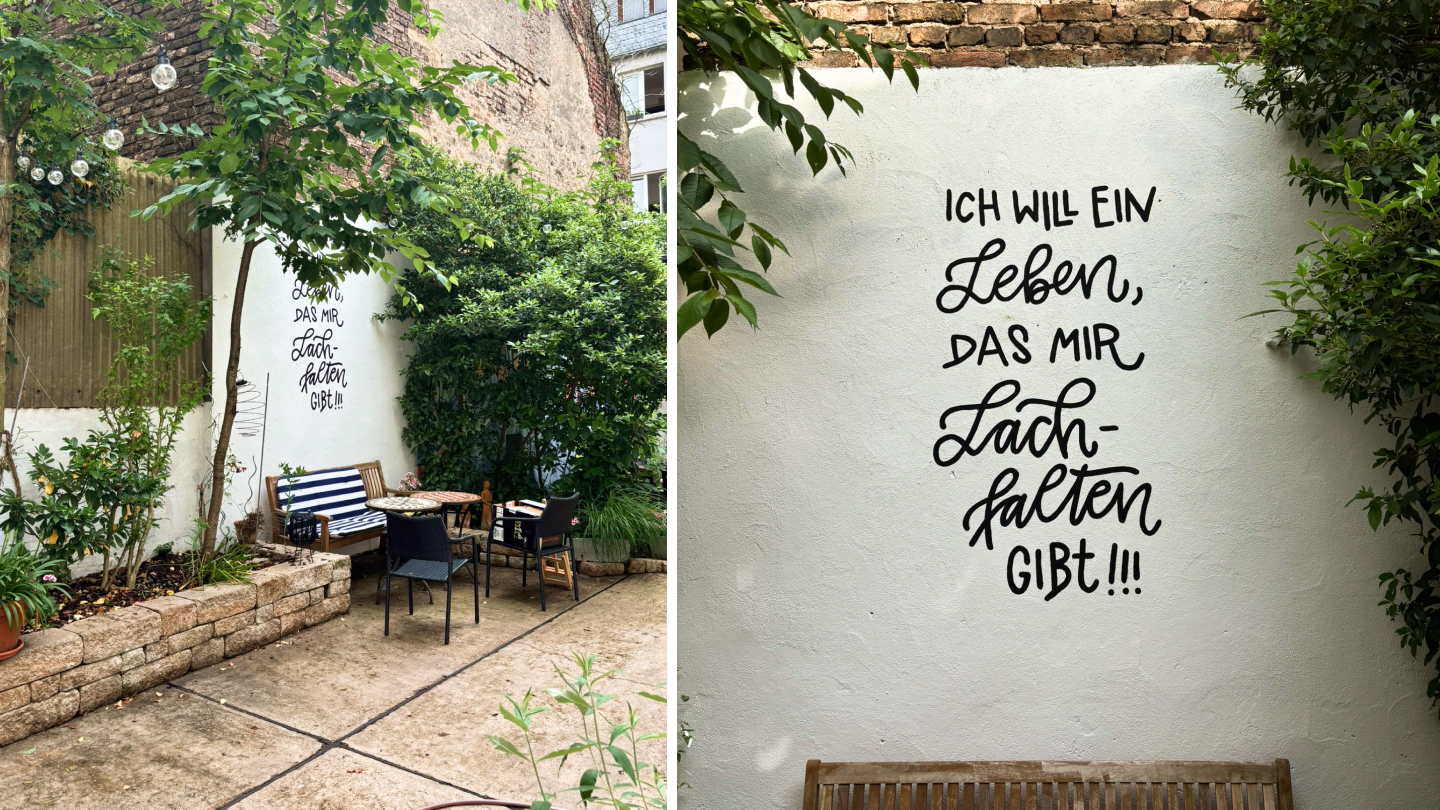 Leben,
DAS MIR
Lach-
falten
GIBt!!!
ICH WILL EIN
Leben,
DAS MIR
Lach-
falten
GIBt!!!